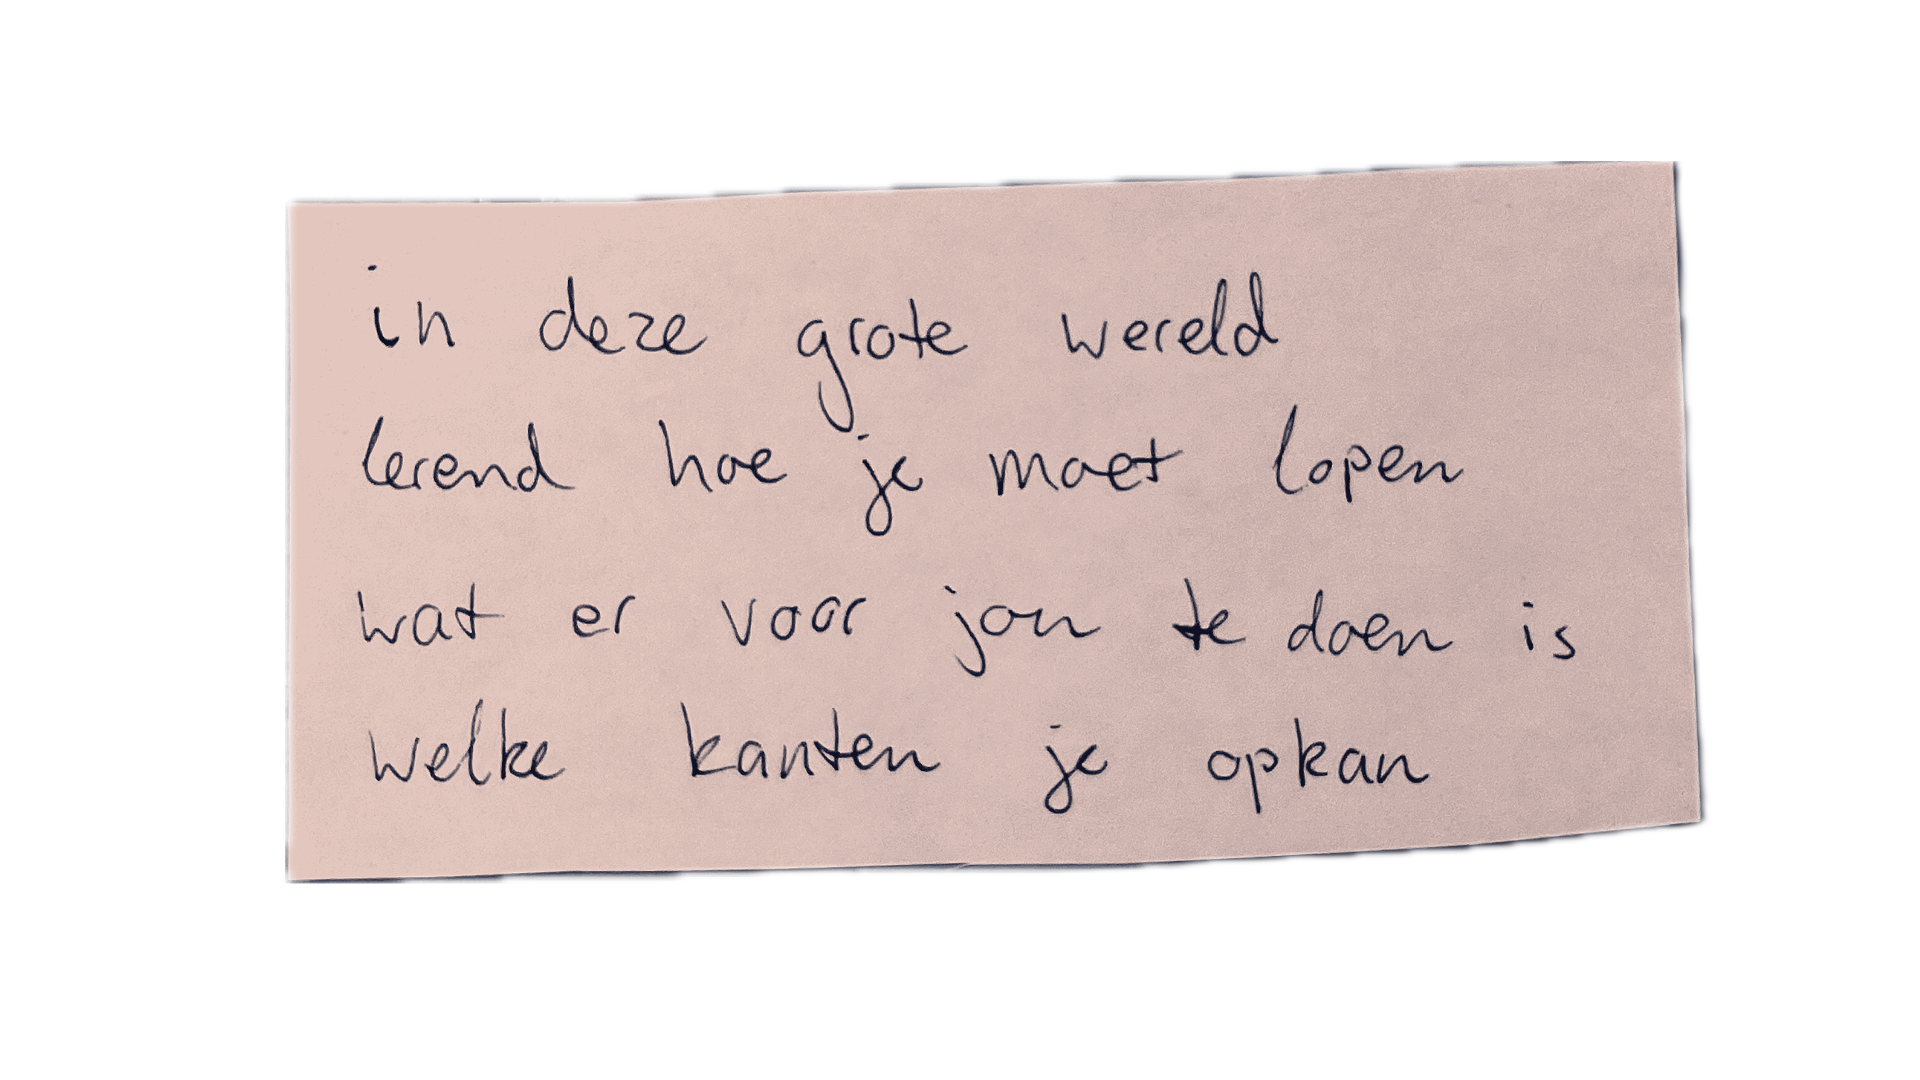 in deze grote wereld
lerend hoe je moet lopen
wat er voor jou te doen is
welke kanten je opkan